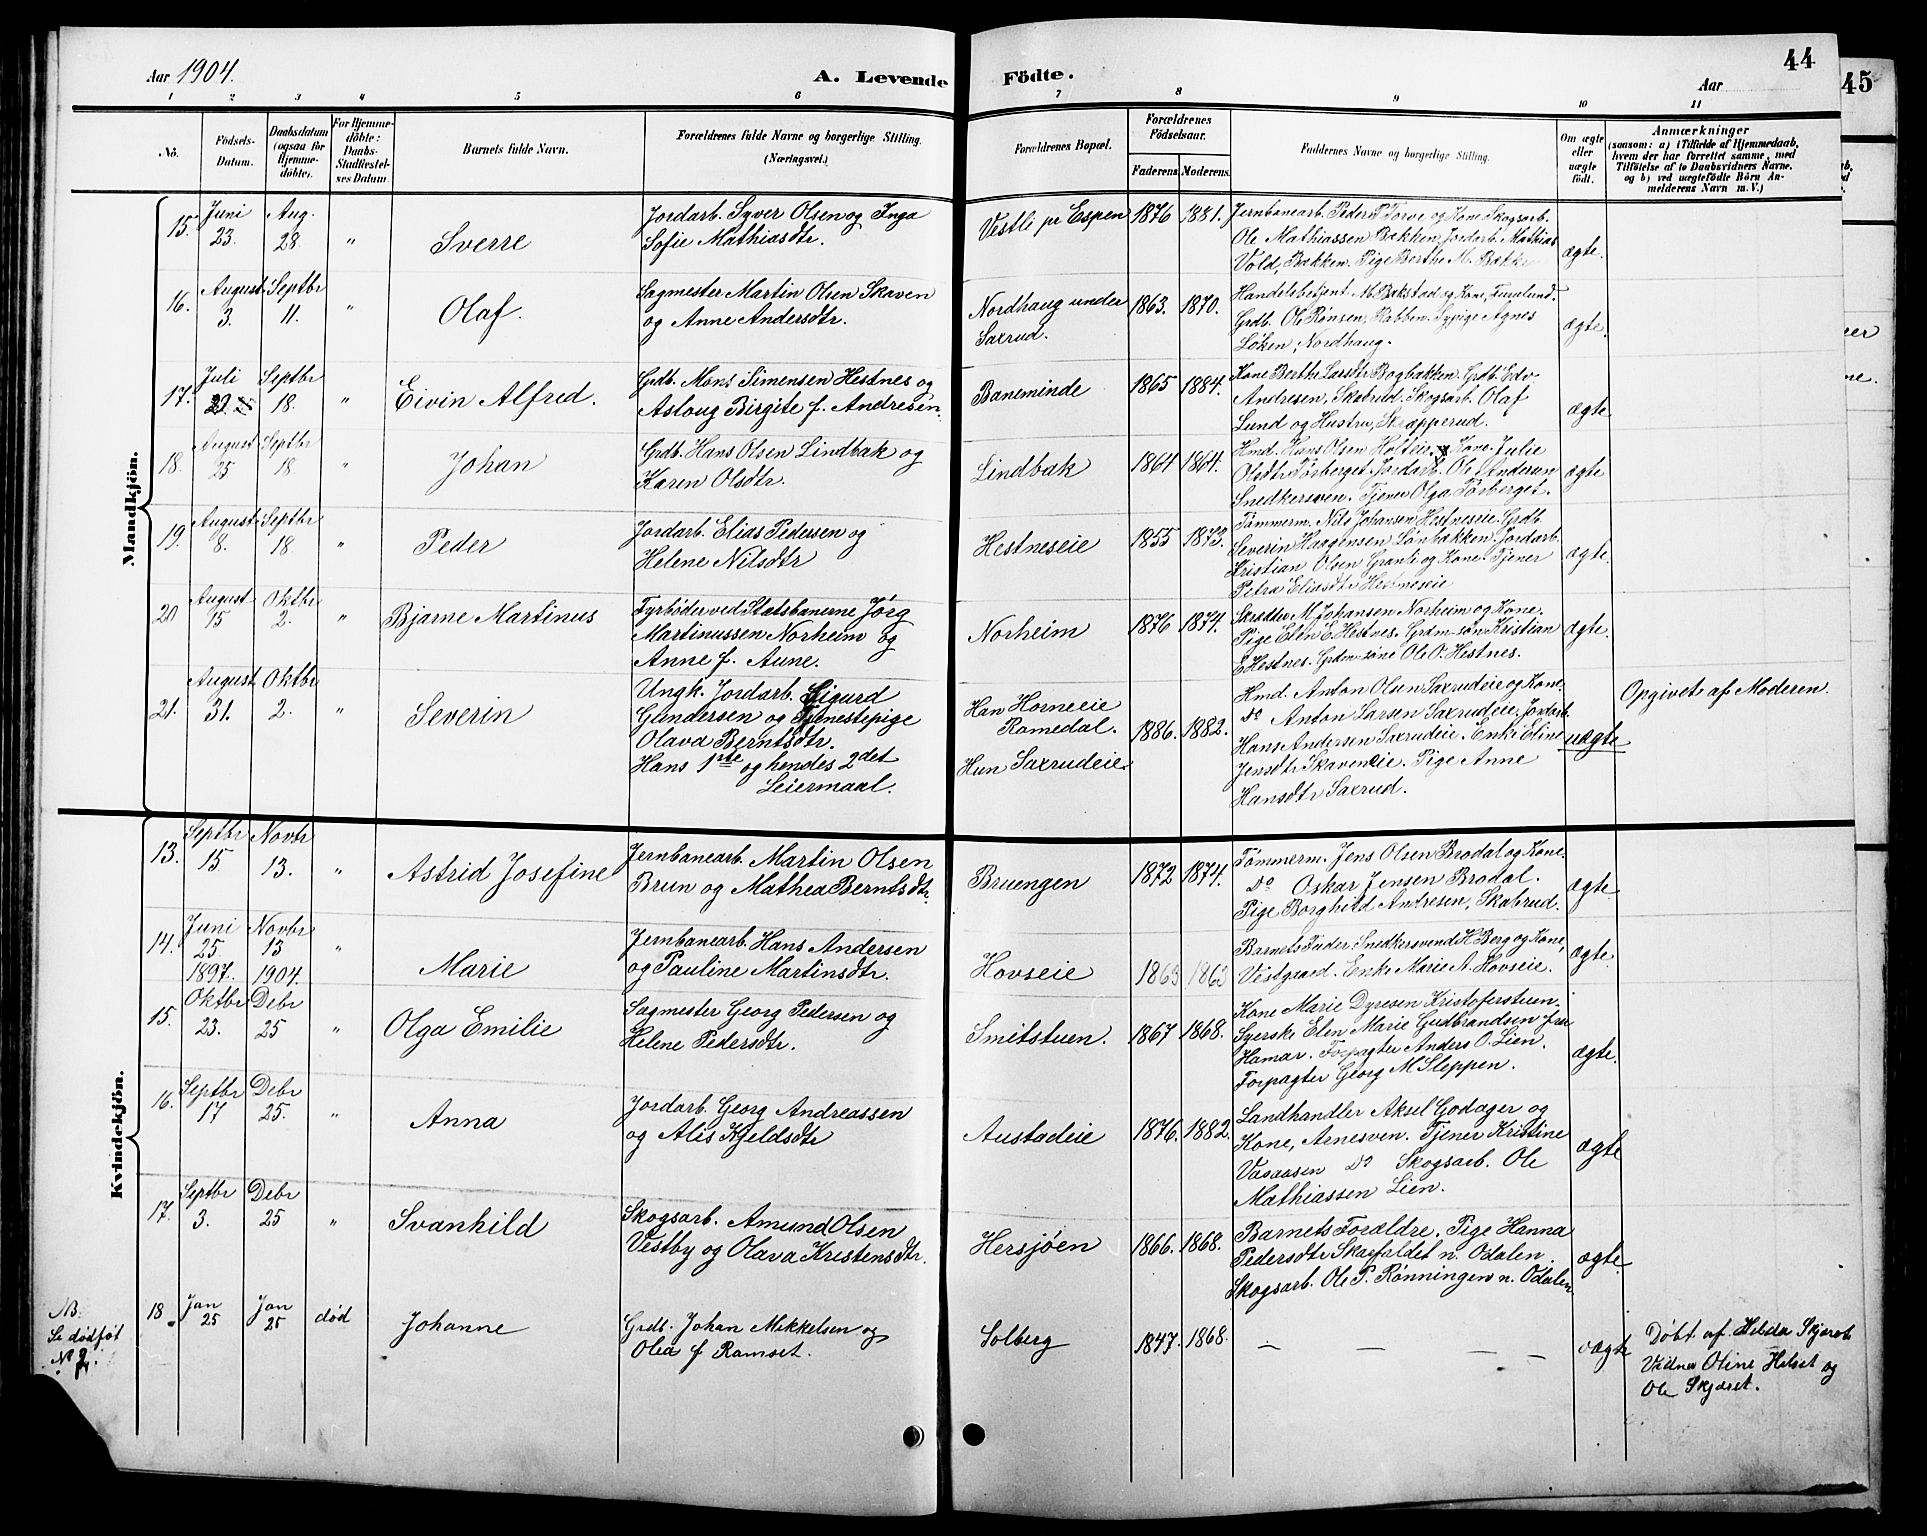 Aar 1904.
A. Levende Födte.
Aar
44
45
1 2 3 4 5 6 7 8 9 10 11
No.
Födsels-Datum.
Daabsdatum (ogsaa for Hjemme-döbte).
For Hjemme-döbte: Daabs-Stadfæstel-ses Datum.
Barnets fulde Navn.
Forældrenes fulde Navne og borgerlige Stilling. (Næringsvei.)
Forældrenes Bopæl.
Forældrenes Födselsaar.
Faderens. Moderens.
Faddernes Navne og borgerlige Stilling.
Om ægte eller uægte födt.
Anmærkninger
(saasom: a) i Tilfælde af Hjemmedaab,
hvem der har forrettet samme, med
Tilföielse af to Daabsvidners Navne,
og b) ved uægtefödte Börn An-
melderens Navn m. V.)
Mandkjön.
15. Juni 23. Aug. 28. " Sverre
Jordarb. Syver Olsen og Inga
Sofie Mathiasdtr.
Vestli pr Espen 1876 1881.
Jernbanearb. Peder T Torve og Kone Skogsarb.
Ole Mathiassen Bækken, Jordarb. Mathias
Vold, Bækken. Pige Berthe M. Bække
ægte.
16. August 3. Septbr 11. " Olaf.
Sagmester Martin Olsen Skaven
og Anne Andersdtr.
Nordhaug under
Saxrud.
1863. 1870.
Handelsbetjent M. Bakstad og Kone, Furulund.
Grdb. Ole Rønsen, Rabben. Sypige Agnes
Løken, Nordhaug.
ægte.
17. Juli 29. Septbr 18. " Eivin Alfred.
Grdb. Mons Simensen Hestnes og
Aslaug Birgite f. Andresen.
Baneminde 1865 1884.
Kone Berthe Larsdtr Bogbakken. Grdb. Edv
Andresen, Skabrud. Skogsarb. Olaf
Lund og Hustru, Skræpperud.
ægte
18. August 25 Septbr 18. " Johan
Grdb. Hans Olsen Lindbak og
Karen Olsdtr.
Lindbak 1864 1864.
Hmd. Hans Olsen Holteie. Kone Julie
Olsdtr Torberget. Jordarb. Ole Andersen
Snedkersven. Tjener Olga Torberget.
ægte
19. August 8. Septbr 18 " Peder
Jordarb. Elias Pedersen og
Helene Nilsdtr
Hestneseie 1855 1873.
Tømmerm. Nils Johansen Hestneseie. Grdb.
Severin Haagensen Lønbækken. Jordarb.
Kristian Olsen Granli og Kone. Tjener
Petra Eliasdtr Hestneseie
ægte
20 August 15 Oktbr 2. " Bjarne Martinus
Fyrbøder ved Statsbanerne Jørg
Martinussen Norheim og
Anne f. Aune.
Norheim 1876 1874.
M. Johansen Norheim og Kone.
Pige Elen E. Hestnes. Grdm-søn Kristian
E. Hestnes. Grdm-søn Ole O. Hestnes.
ægte.
21. August 31. Oktbr 2. " Severin
Ungk. Jordarb. Sigurd
Gundersen og Tjenestepige
Olava Berntsdtr.
Hans 1ste og hendes 2det
Leiermaal.
Han Horneeie
Romedal.
Hun Saxrudeie.
1886. 1882.
Hmd. Anton Olsen Saxrudeie og Kone.
Do Anton Larsen Saxrudeie. Jordarb.
Hans Andersen Saxrudeie. Enke Eline
Jensdtr Skaveneie. Pige Anne
Hansdtr Saxrud.
uægte
Opgivet af Moderen.
Kvindekjön.
13. Septbr 15 Novbr 13. " Astrid Josefine
Jernbanearb. Martin Olsen
Brun og Mathea Berntsdtr.
Bruengen 1872 1874.
Tømmerm. Jens Olsen Brodal og Kone.
Do Oskar Jensen Brodal.
Pige Borghild Andresen, Skabrud.
ægte.
14. Juni 25 1897. Novbr 13 1904. " Marie
Jernbanearb. Hans Andersen
og Pauline Martinsdtr.
Hovseie 1863 1863
Barnets Fader, Snedkersvend H. Berg og Kone,
Vestgaard. Enke Marie A. Hovseie.
ægte.
15. Oktbr 23. Debr 25 " Olga Emilie
Sagmester Georg Petersen og
Helene Pedersdtr.
Smitstuen. 1867 1868.
Kone Marie Dyresen Kristoferstuen.
Syerske Elen Marie Gudbrandsen fra
Hamar. Forpagter Anders O. Lien.
Forpagter Georg M Sleppen.
ægte.
16. Septbr 17 Debr 25. " Anna
Jordarb. Georg Andreassen
og Alis Kjeldsdtr
Austadeie 1876. 1882.
Landhandler Aksel Godager og
Kone, Arnesven. Tjener Kristine
Vasaasen Do Skogsarb. Ole
Mathiassen Lien.
ægte
17. Septbr 3. Debr 25 " Svanhild
Skogsarb. Amund Olsen
Vestby og Olava Kristensdtr.
Hersjøen 1866. 1868.
Barnets Forældre. Pige Hanna
Pedersdtr Skarfaldet n. Odalen.
Skogsarb. Ole P. Rønningen n. Odalen
ægte.
NB.
Se dødføt
No 2.
18. Jan 25 Jan 25 død Johanne
Grdb. Johan Mikkelsen og
Olea f Ramset.
Solberg 1847 1868. — — — —
ægte
Døbt af Hilda Skjæret
Vidner Oline Helset og
Ole Skjæret.